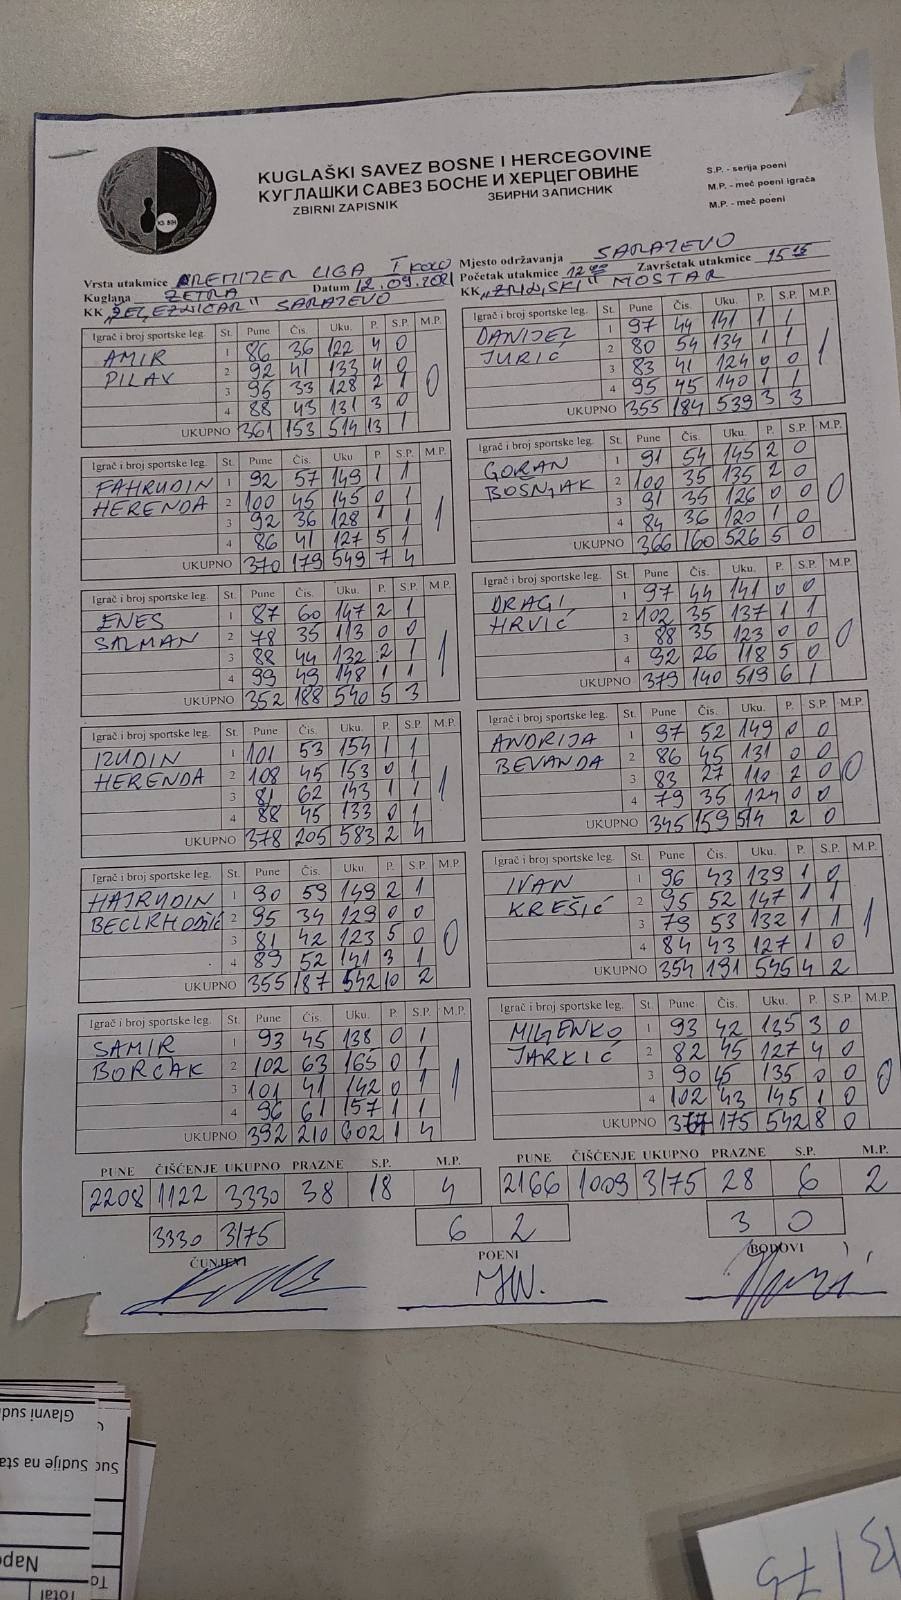 KUGLAŠKI SAVEZ BOSNE I HERCEGOVINE
КУГЛАШКИ САВЕЗ БОСНЕ И ХЕРЦЕГОВИНЕ
ZBIRNI ZAPISNIK ЗБИРНИ ЗАПИСНИК
S.P. - serija poeni
M.P. - meč poeni igrača
M.P. - meč poeni
KS BiH
Vrsta utakmice PREMIJER LIGA I KOLO Mjesto održavanja SARAJEVO
Kuglana ZETRA Datum 12.09.2021 Početak utakmice 12 Završetak utakmice 15 15
KK „ŽELJEZNIČAR" SARAJEVO KK „ZRINJSKI" MOSTAR
Igrač i broj sportske leg. St. Pune Čis. Uku. P. S.P. M.P.
AMIR 1 86 36 122 4 0
PILAV 2 92 41 133 4 0
3 95 33 128 2 1 0
4 88 43 131 3 0
UKUPNO 361 153 514 13 1
Igrač i broj sportske leg. St. Pune Čis. Uku. P. S.P. M.P.
DANIJEL 1 97 44 141 1 1
JURIĆ 2 80 54 134 1 1
3 83 41 124 0 0 1
4 95 45 140 1 1
UKUPNO 355 184 539 3 3
Igrač i broj sportske leg. St. Pune Čis. Uku. P. S.P. M.P.
FAHRUDIN 1 92 57 149 1 1
HERENDA 2 100 45 145 0 1
3 92 36 128 1 1 1
4 86 41 127 5 1
UKUPNO 370 179 549 7 4
Igrač i broj sportske leg. St. Pune Čis. Uku. P. S.P. M.P.
GORAN 1 91 54 145 2 0
BOŠNJAK 2 100 35 135 2 0
3 91 35 126 0 0 0
4 84 36 120 1 0
UKUPNO 366 160 526 5 0
Igrač i broj sportske leg. St. Pune Čis. Uku. P. S.P. M.P.
ENES 1 87 60 147 2 1
SALMAN 2 78 35 113 0 0
3 88 44 132 2 1 1
4 99 49 148 1 1
UKUPNO 352 188 540 5 3
Igrač i broj sportske leg. St. Pune Čis. Uku. P. S.P. M.P.
DRAGI 1 97 44 141 0 0
HRVIĆ 2 102 35 137 1 1
3 88 35 123 0 0 0
4 92 26 118 5 0
UKUPNO 379 140 519 6 1
Igrač i broj sportske leg. St. Pune Čis. Uku. P. S.P. M.P.
IZUDIN 1 101 53 154 1 1
HERENDA 2 108 45 153 0 1
3 81 62 143 1 1 1
4 88 45 133 0 1
UKUPNO 378 205 583 2 4
Igrač i broj sportske leg. St. Pune Čis. Uku. P. S.P. M.P.
ANDRIJA 1 97 52 149 0 0
BEVANDA 2 86 45 131 0 0
3 83 27 110 2 0 0
4 79 35 124 0 0
UKUPNO 345 159 514 2 0
Igrač i broj sportske leg. St. Pune Čis. Uku. P. S.P. M.P.
HAJRUDIN 1 90 59 149 2 1
2 95 34 129 0 0
3 81 42 123 5 0 0
4 89 52 141 3 1
UKUPNO 355 187 542 10 2
Igrač i broj sportske leg. St. Pune Čis. Uku. P. S.P. M.P.
IVAN 1 96 43 139 1 0
KREŠIĆ 2 95 52 147 1 1
3 79 53 132 1 1 1
4 84 43 127 1 0
UKUPNO 354 191 545 4 2
Igrač i broj sportske leg. St. Pune Čis. Uku. P. S.P. M.P.
SAMIR 1 93 45 138 0 1
BORČAK 2 102 63 165 0 1
3 101 41 142 0 1 1
4 96 61 157 1 1
UKUPNO 392 210 602 1 4
Igrač i broj sportske leg. St. Pune Čis. Uku. P. S.P. M.P.
MILJENKO 1 93 42 135 3 0
JARKIĆ 2 82 45 127 4 0
3 90 45 135 0 0 0
4 102 43 145 1 0
UKUPNO 175 542 8 0
PUNE ČIŠĆENJE UKUPNO PRAZNE S.P. M.P.
2208 1122 3330 38 18 4
PUNE ČIŠĆENJE UKUPNO PRAZNE S.P. M.P.
2166 1009 3175 28 6 2
3330 3175 6 2 3 0
ČUNJEVI POENI BODOVI
Glavni sud
Sudije na sta
Sud
Napo
Total
To